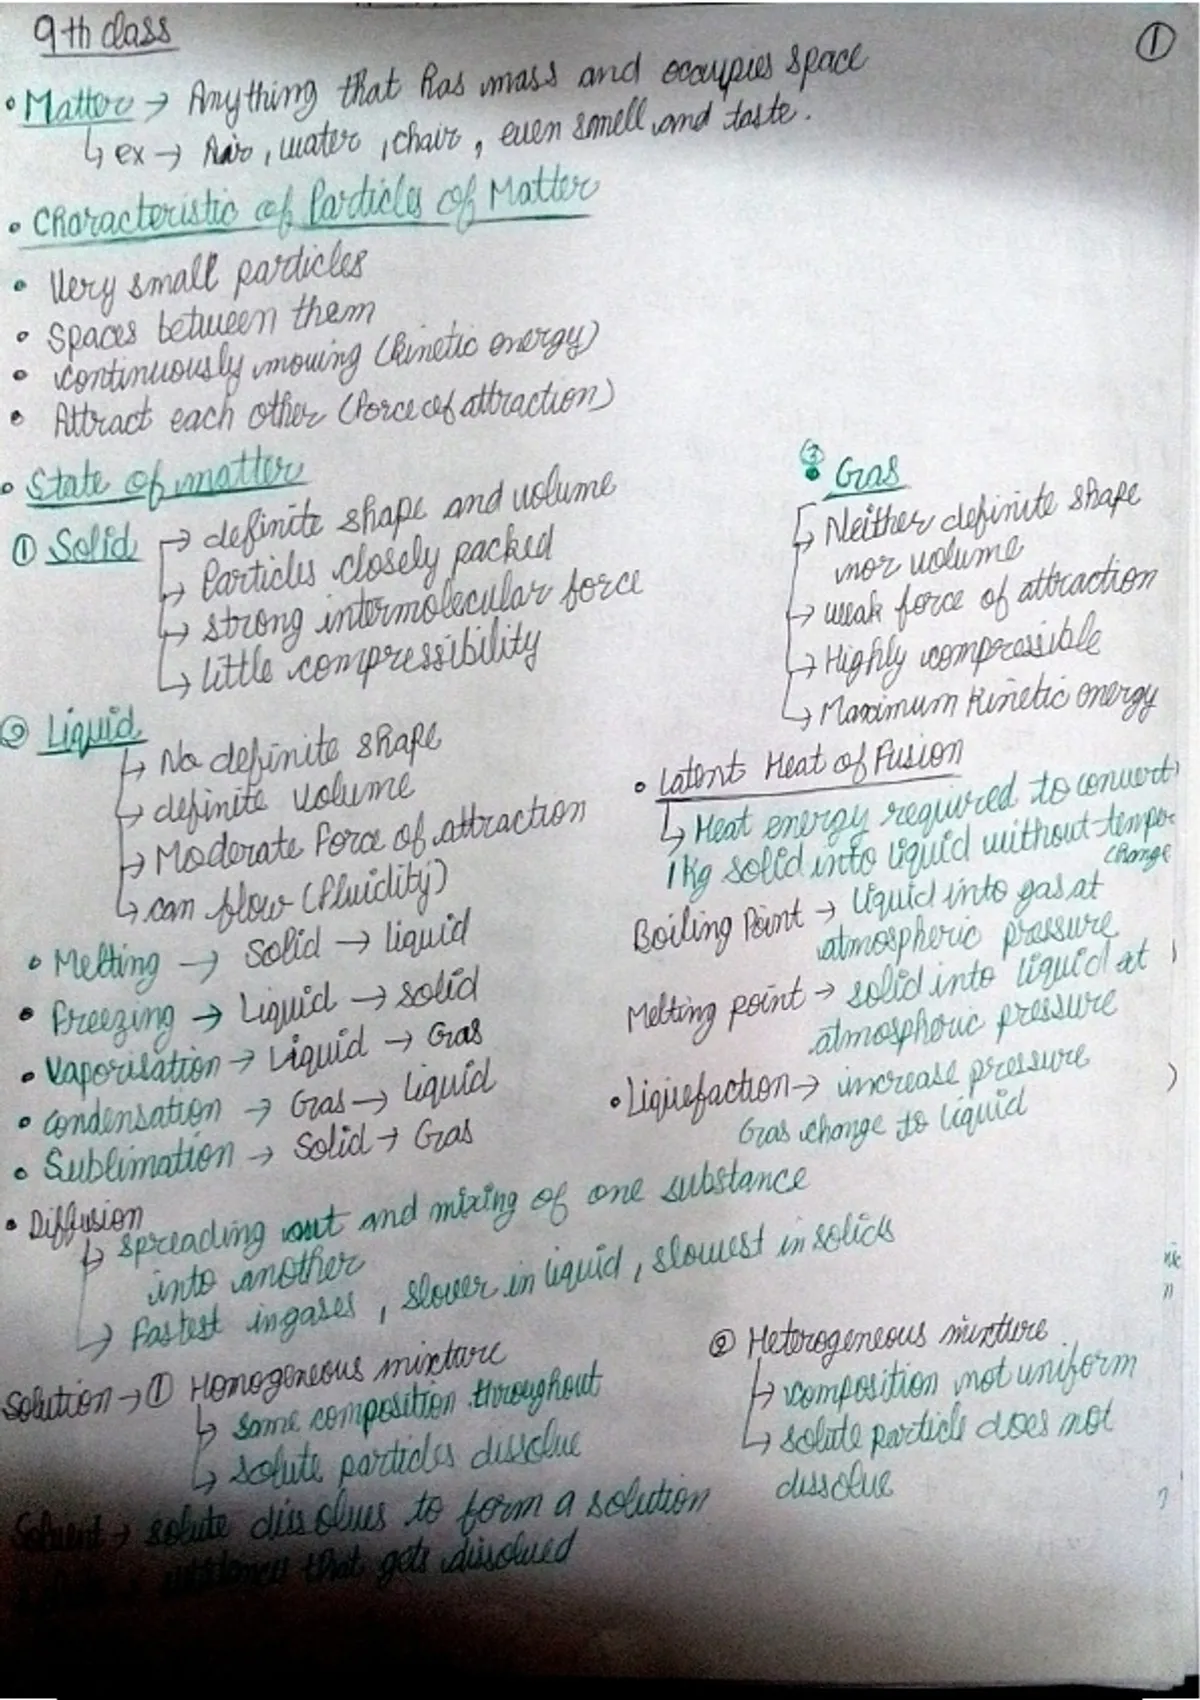 9th class
①
• Matter → Anything that has mass and occupies space
↳ ex → Air, water, chair, even smell and taste.
• Characteristic of Particles of Matter
• Very small particles
• Spaces between them
• continuously moving (kinetic energy)
• Attract each other (Force of attraction)
• State of matter
① Solid
→ definite shape and volume
→ Particles closely packed
→ strong intermolecular force
→ little compressibility
② Liquid
→ No definite shape
→ definite volume
→ Moderate Force of attraction
→ can flow (fluidity)
• Melting → Solid → liquid
• Freezing → Liquid → solid
• Vaporisation → Liquid → Gas
• Condensation → Gas → Liquid
• Sublimation → Solid → Gas
③
• Gas
→ Neither definite shape
nor volume
→ weak force of attraction
→ Highly compressible
→ Maximum kinetic energy
• Latent Heat of Fusion
↳ Heat energy required to convert
1 Kg solid into liquid without temper
change
Boiling Point → liquid into gas at
atmospheric pressure
Melting point → solid into liquid at
atmospheric pressure
• Liquefaction → increase pressure
Gas change to liquid
• Diffusion
↳ spreading out and mixing of one substance
into another
→ Fastest in gases, slower in liquid, slowest in solids
Solution → ① Homogeneous mixture
↳ same composition throughout
↳ solute particles dissolve
② Heterogeneous mixture
↳ composition not uniform
↳ solute particle does not
dissolve
Solvent → solute dissolves to form a solution
substance that gets dissolved